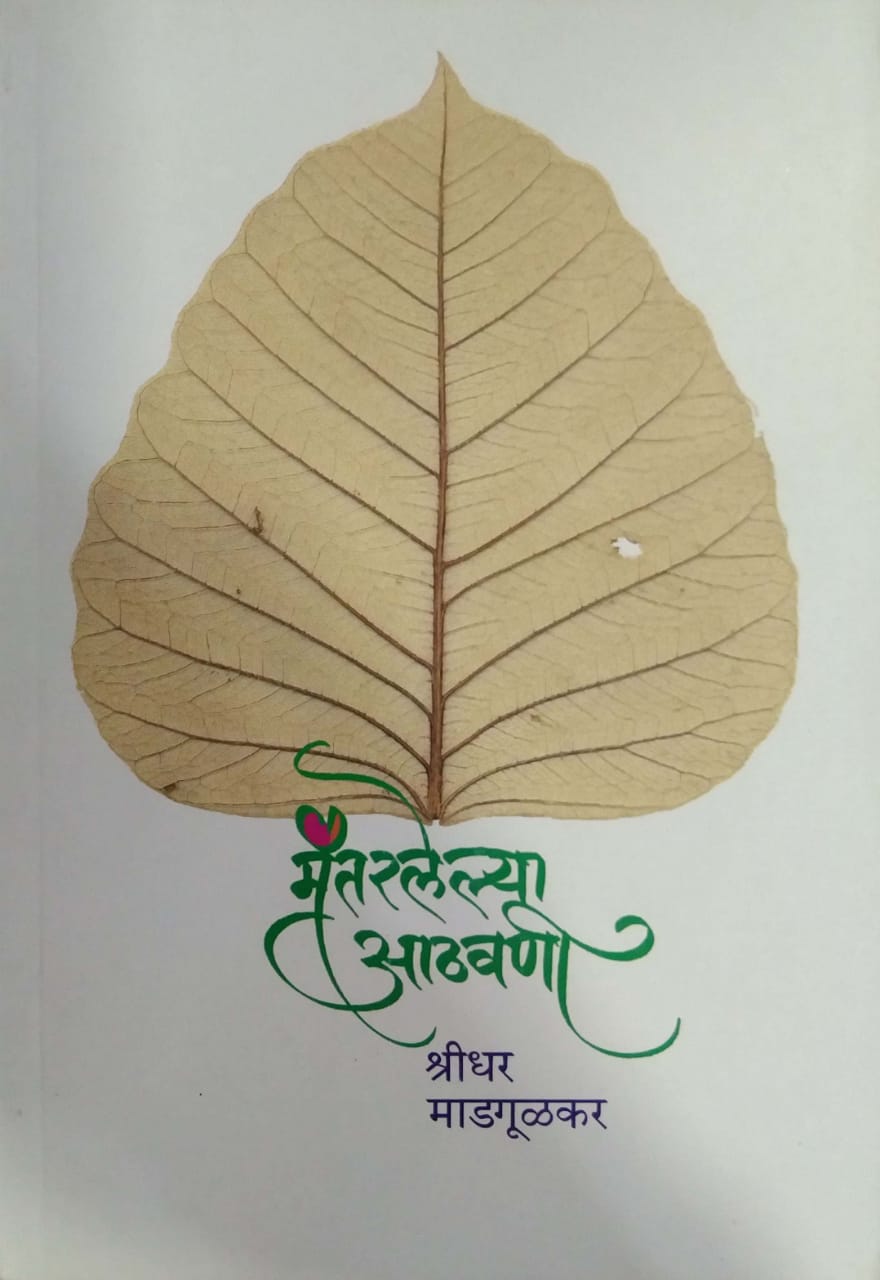 मंतरलेल्या
आठवणी
श्रीधर
माडगूळकर